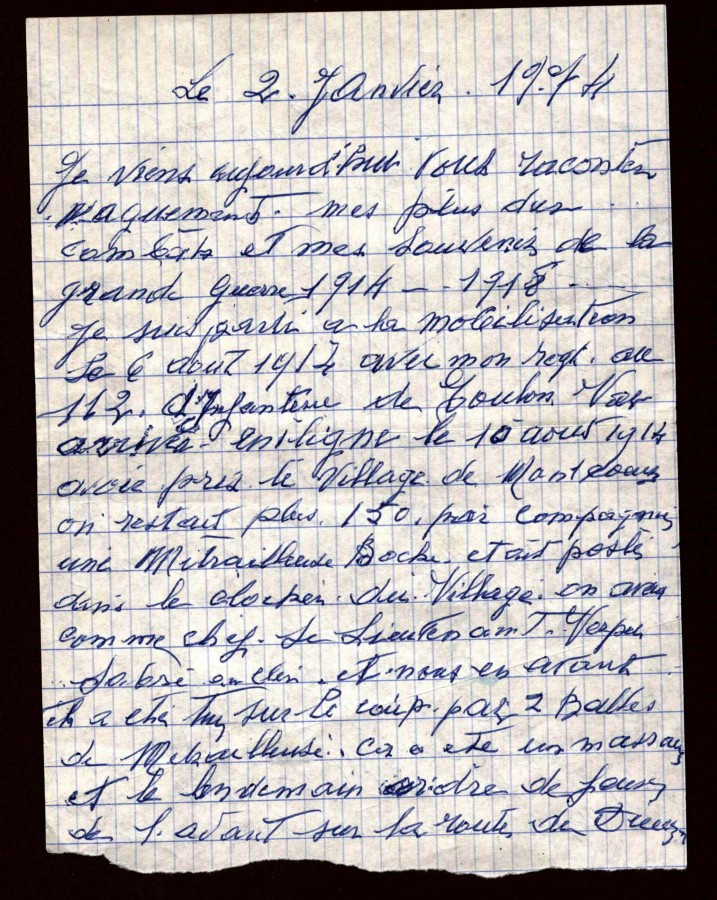 Le 2. Janvier. 1974
Je viens aujourd'hui vous raconter
vaguement. mes plus dur
combats et mes souvenir de la
grande Guerre 1914 - - 1918 -
Je suis parti a la mobilisation
Le 6 aout 1914 avec mon regt. au
112. d'Infanterie de Toulon Var
arrivé en ligne le 10 aout 1914
avoir pris le Village de
on restait plus. 150. par compagnie
une Mitrailleuse Boche etait posté
dans le clocher du Village. on avait
comme chef. Le Lieutenant.
Sabre au clin et nous en avant
il a été tuy sur le coup. par 2 Balles
de Mitrailleuse. ca a été un massacre
et le lendemain ordre de
de l'avant sur la route de